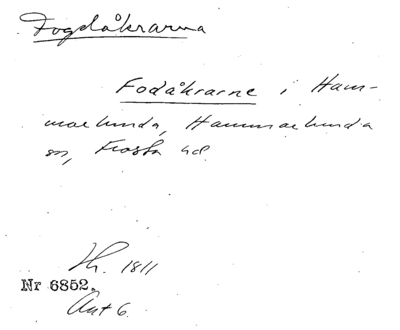 Fogdåkrarna
Fodåkrarne i Ham-
marlunda, Hammarlunda
sn, Frosta hd.
Th. 1811
Nr 6852.
Akt 6.